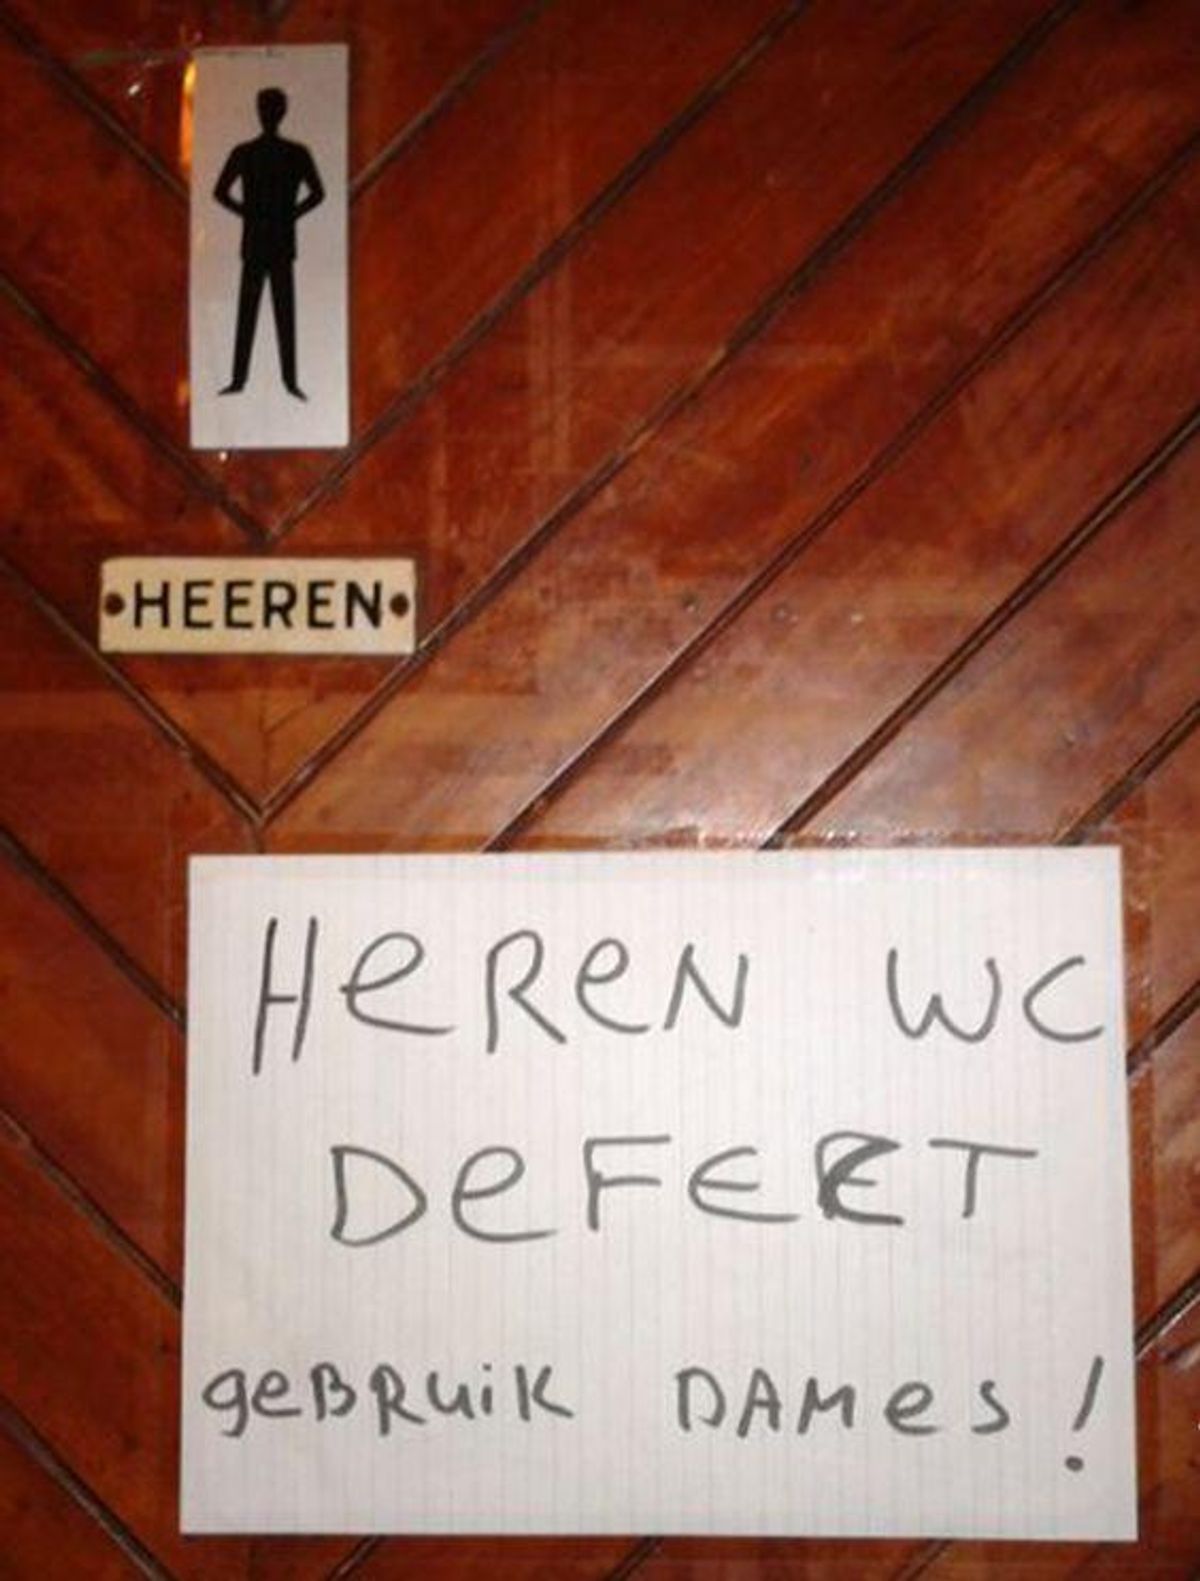 HEEREN
HeReN WC
DeFECT
geBRuiK DAMes!